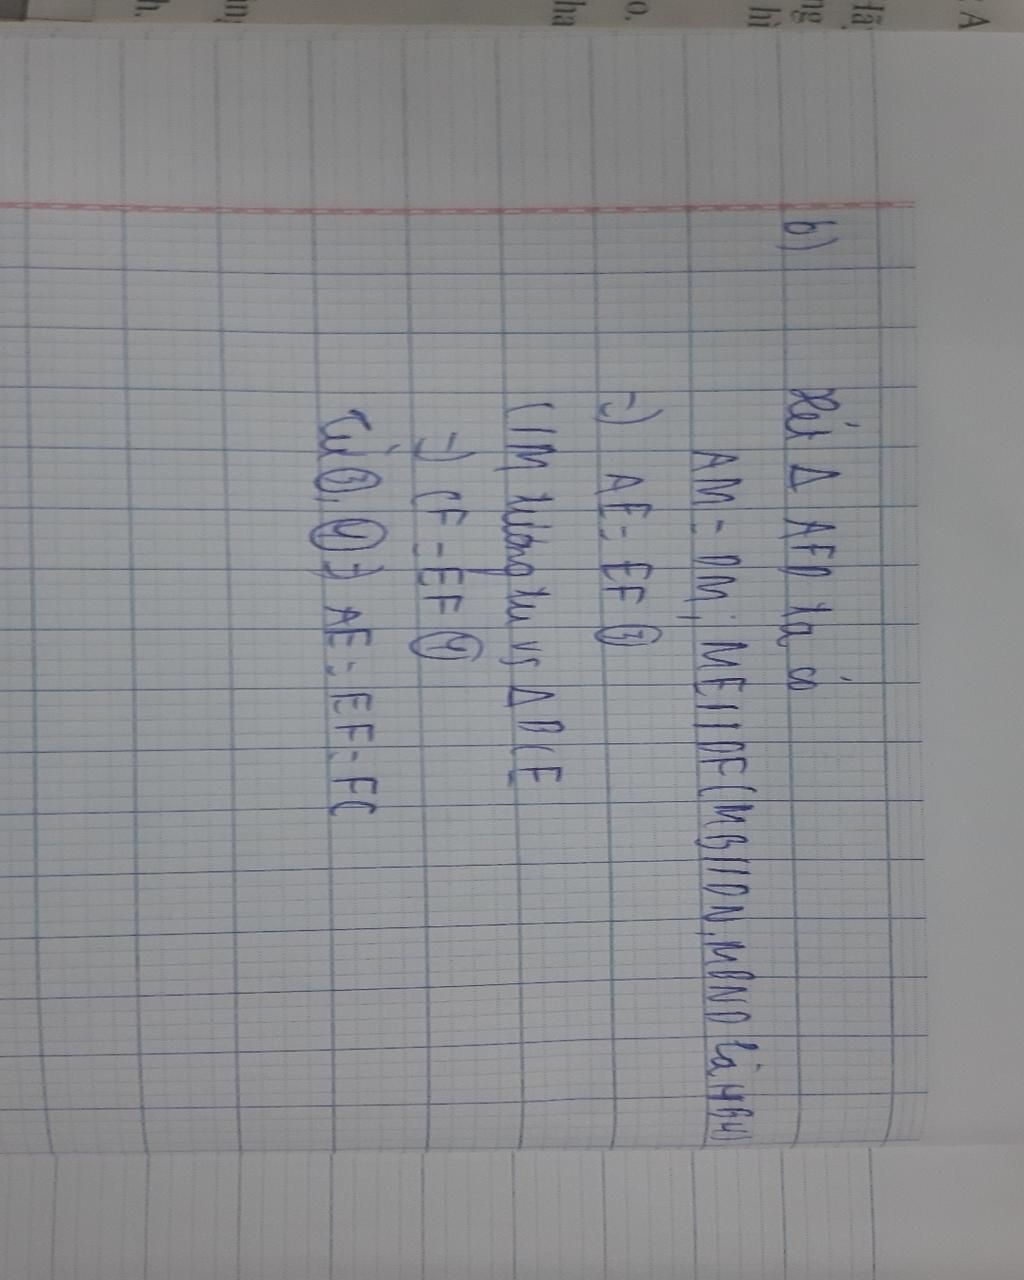 b) Xét Δ AFD ta có
AM = DM; ME // DF (MB // DN, MBND là HBH)
=) AE = EF ③
CM tương tự vs Δ BCE
=) CF = EF ④
Từ ③, ④ =) AE = EF = FC